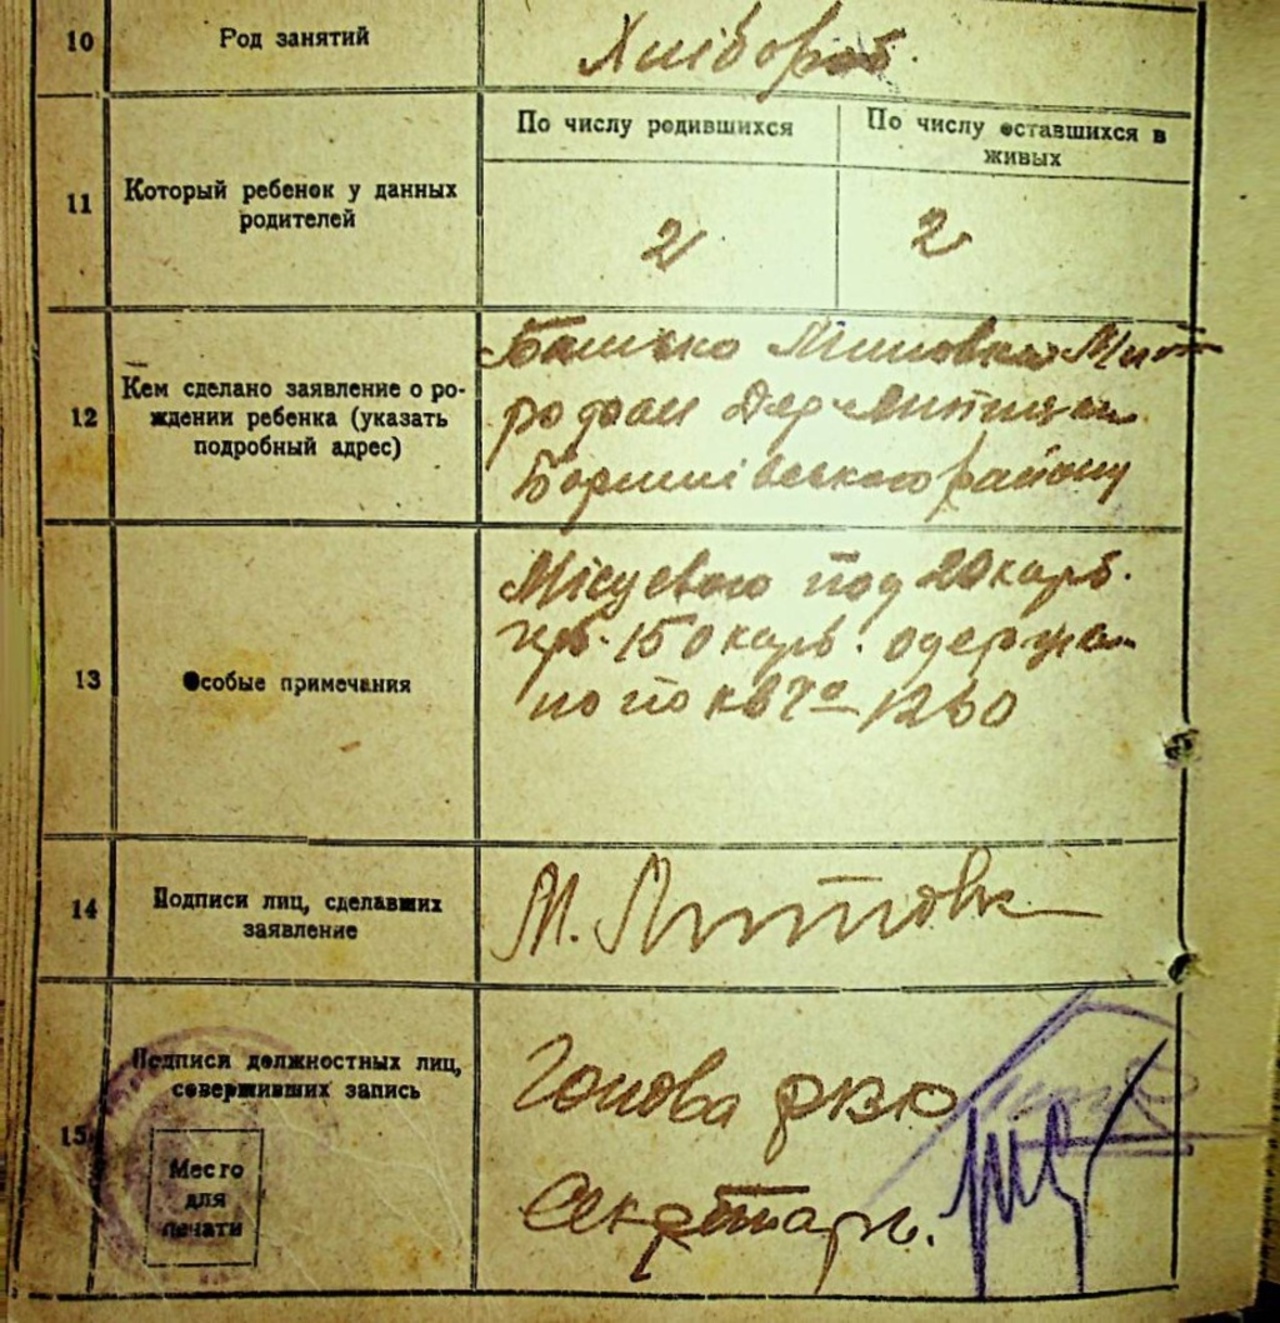 10 Род занятий Хлібороб.
11 Который ребенок у данных родителей
По числу родившихся
По числу оставшихся в живых
2 2
12 Кем сделано заявление о рождении ребенка (указать подробный адрес)
Батько
Борщівського району
13 Особые примечания
Місцевого под 20 карб.
150 карб. одержа-
но по кв 1260
14 Подписи лиц, сделавших заявление
М.
15 Подписи должностных лиц, совершивших запись
Голова
Секретарь.
Место
для
печати